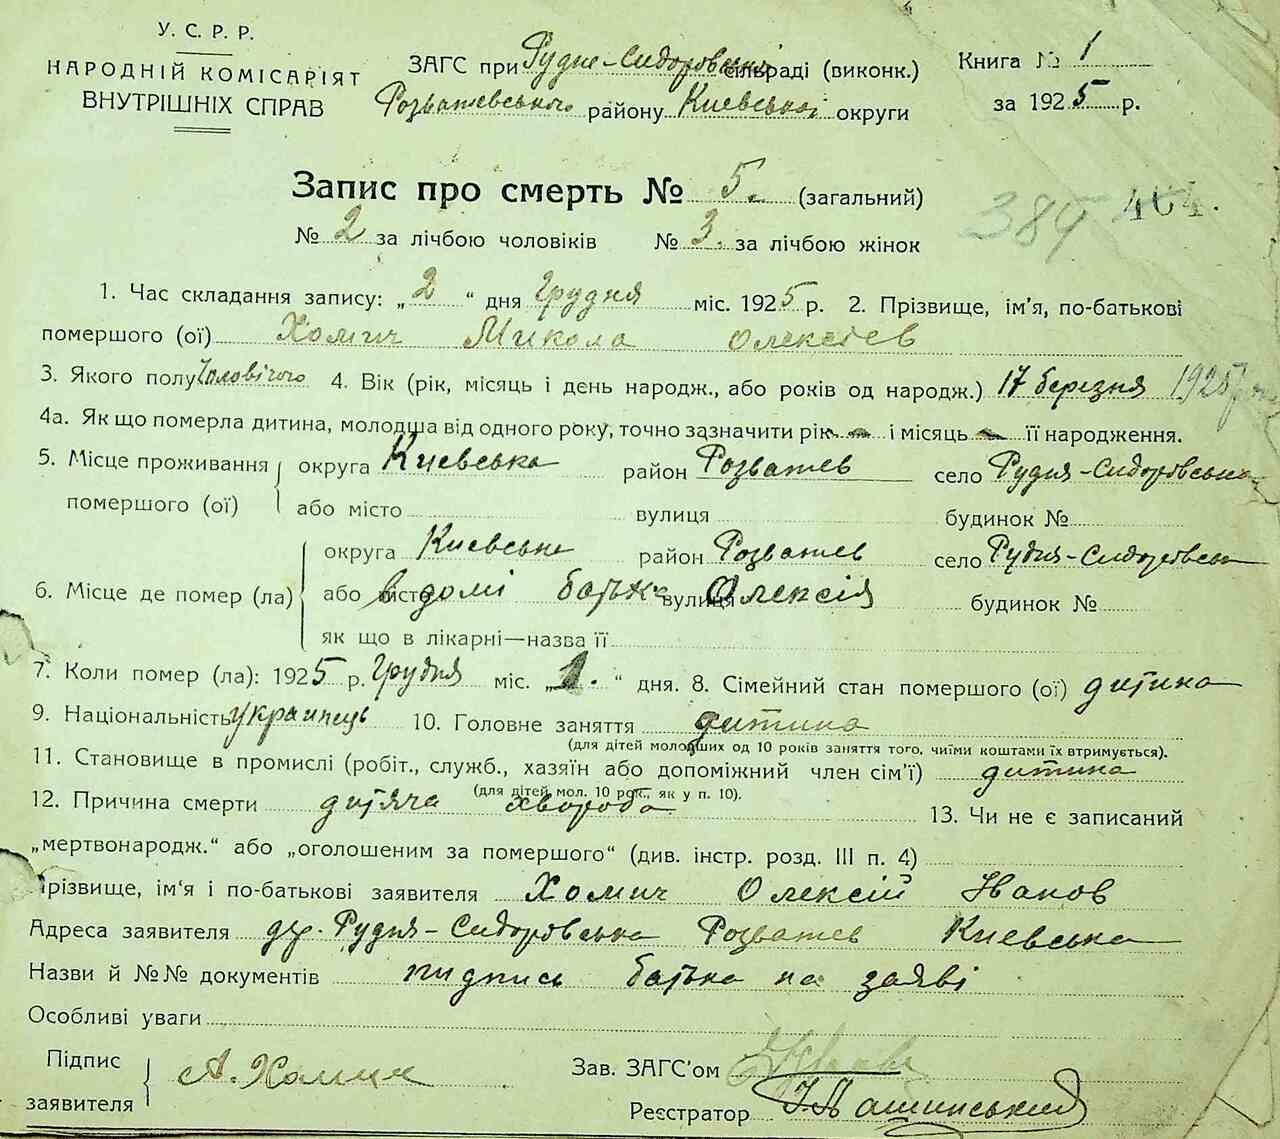 У. С. Р. Р.
НАРОДНІЙ КОМІСАРІЯТ
ВНУТРІШНІХ СПРАВ
ЗАГС при Рудне-Сидоровській сільраді (виконк.)
Розважевського району Киевської округи
Книга № 1
за 1925 р.
Запис про смерть № 5. (загальний)
№ 2 за лічбою чоловіків № 3. за лічбою жінок
389 404.
1. Час складання запису: „2“ дня Грудня міс. 1925 р. 2. Прізвище, ім'я, по-батькові
помершого (ої) Хомич Микола Олексіев
3. Якого полу Чоловічого 4. Вік (рік, місяць і день народж., або років од народж.) 17 березня 1925
4а. Як що померла дитина, молодша від одного року, точно зазначити рік — і місяць — її народження.
5. Місце проживання округа Киевська район Розважев село Рудня-Сидоровська
помершого (ої) або місто вулиця будинок №
округа Киевська район Розважев село Рудня-Сидоровськ
6. Місце де помер (ла) або місто вдомі батька вулиця Олексія будинок №
як що в лікарні—назва її
7. Коли помер (ла): 1925 р. Грудня міс. „1.“ дня. 8. Сімейний стан помершого (ої) дитина
9. Національність украінець 10. Головне заняття дитина
(для дітей молодших од 10 років заняття того, чиїми коштами їх втримується).
11. Становище в промислі (робіт., служб., хазяїн або допоміжний член сім'ї) дитина
(для дітей мол. 10 рок., як у п. 10).
12. Причина смерти дитяча хвороба 13. Чи не є записаний
„мертвонародж.“ або „оголошеним за помершого“ (див. інстр. розд. III п. 4)
Прізвище, ім'я і по-батькові заявителя Хомич Олексій Іванов
Адреса заявителя дер. Рудня-Сидоровська Розважев Киевська
Назви й №№ документів підпись батька на заяві
Особливі уваги
Підпис заявителя А. Хомич
Зав. ЗАГС'ом
Реєстратор Пашинський